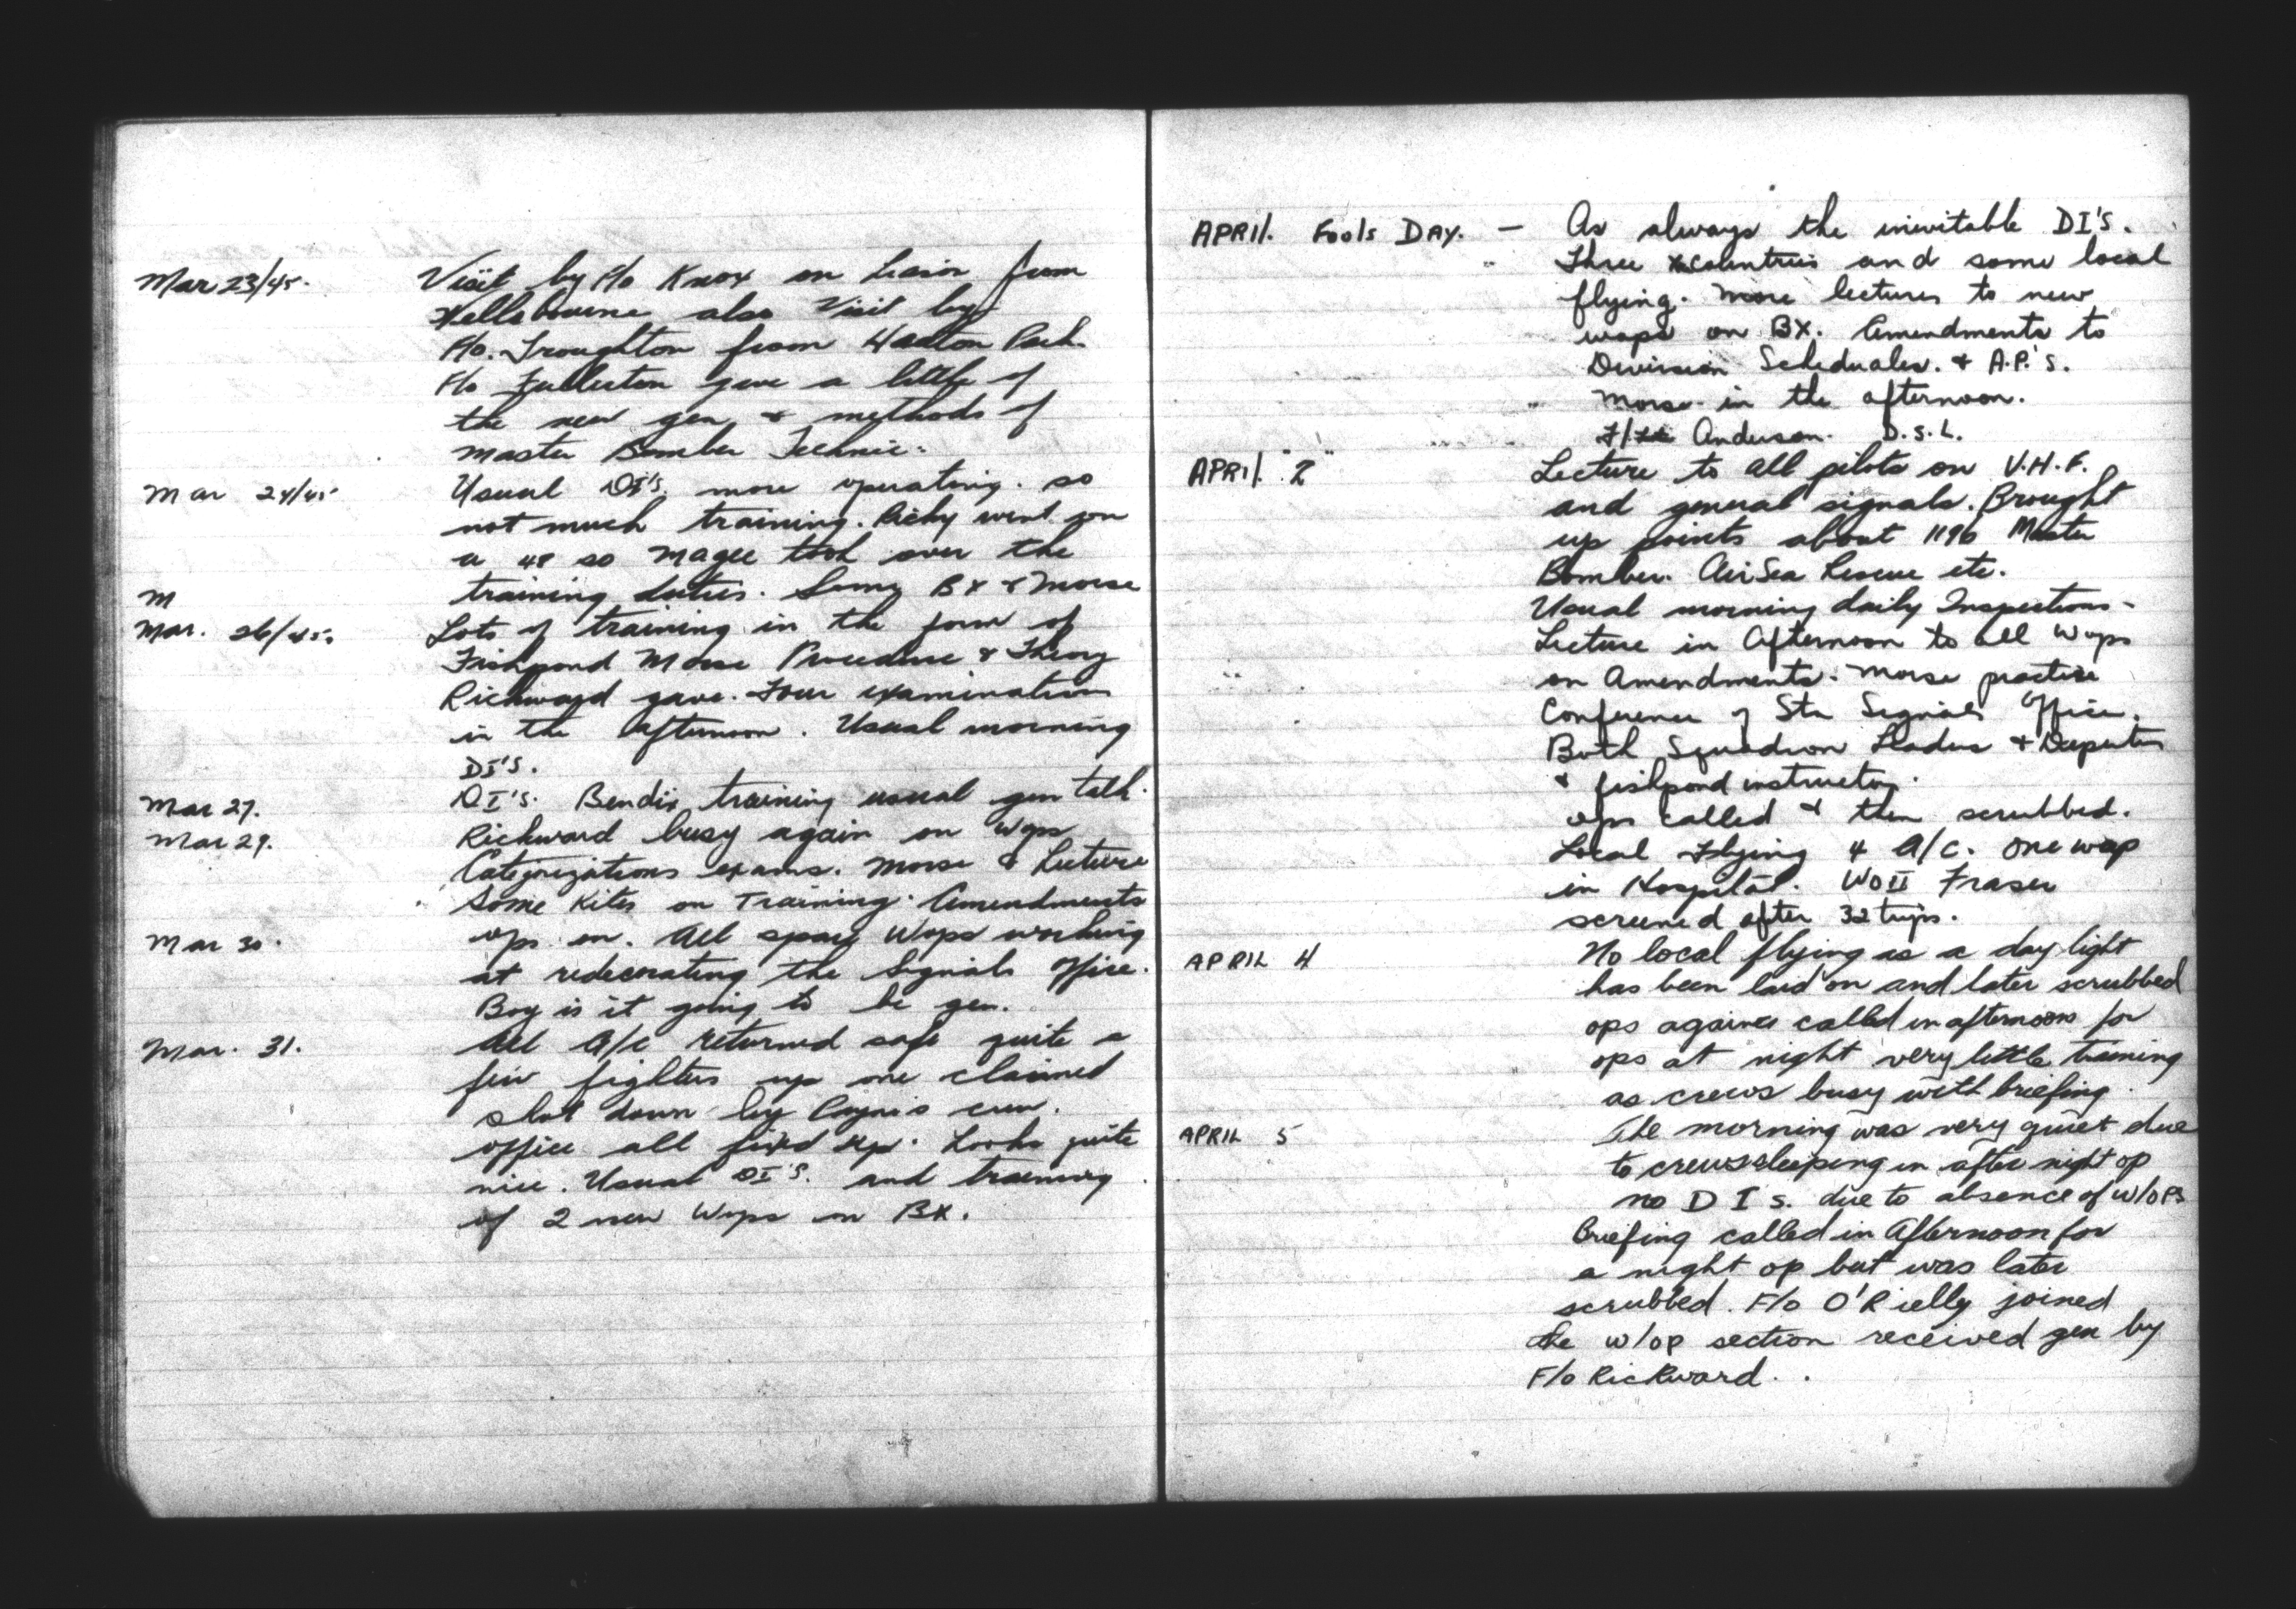 Mar 23/45. Visit by P/o Knox on Liason from
Wellsbourne also Visit by
P/o. Troughton from Wratton Park
F/o Fullerton gave a little of
the new gen & methods of
Master Bomber Technic.
Mar 24/45 Usual DI's. more operating. so
not much training. Richy went on
a 48 so Magee took over the
M training duties. Some BX & Morse
Mar. 26/45. Lots of training in the form of
Fishpond Morse Procedure & Theory
Rickward gave. Four examinations
in the afternoon. Usual morning
DI'S.
Mar 27. DI's. Bendix training usual gen talk.
Mar 29. Rickward busy again on Wops
Categorizations exams. Morse & Lecture
Some Kites on Training. Amendments
Mar 30. ops on. All spare Wops working
at redecorating the Signals Office.
Boy is it going to be gen.
Mar. 31. All A/c returned safe quite a
few fighters up one claimed
shot down by crew.
office all fixed up. Looks quite
nice. Usual DI'S. and training
of 2 new Wops on BX.
APRIL. Fools DAY. — As always the inivitable DI'S.
Three xcountries and some local
flying. More lectures to new
wops on BX. Amendments to
Division Scheduales. & A.P.'S.
Morse in the afternoon.
Anderson. D.S.L.
APRIL "2" Lecture to all pilots on V.H.F.
and general signals. Brought
up points about 1196 Master
Bomber. Air Sea Rescue etc.
Usual morning daily Inspections -
Lecture in Afternoon to all Wops
on Amendments. Morse practise
Conference of Stn Signals Office.
Both Squadron Leaders & Deputies
& fishpond instructor.
ops called & then scrubbed.
Local Flying 4 A/C. One wop
in Hospital. WO II Fraser
screened after 32 trips.
APRIL 4 No local flying as a day light
has been laid on and later scrubbed
ops again called in afternoon for
ops at night very little training
as crews busy with briefing.
APRIL 5 The morning was very quiet due
to crews sleeping in after night op
no D I s. due to absence of W/OPs
Briefing called in Afternoon for
a night op but was later
scrubbed. F/o O'Rielly joined
the W/OP section received gen by
F/o Rickward.